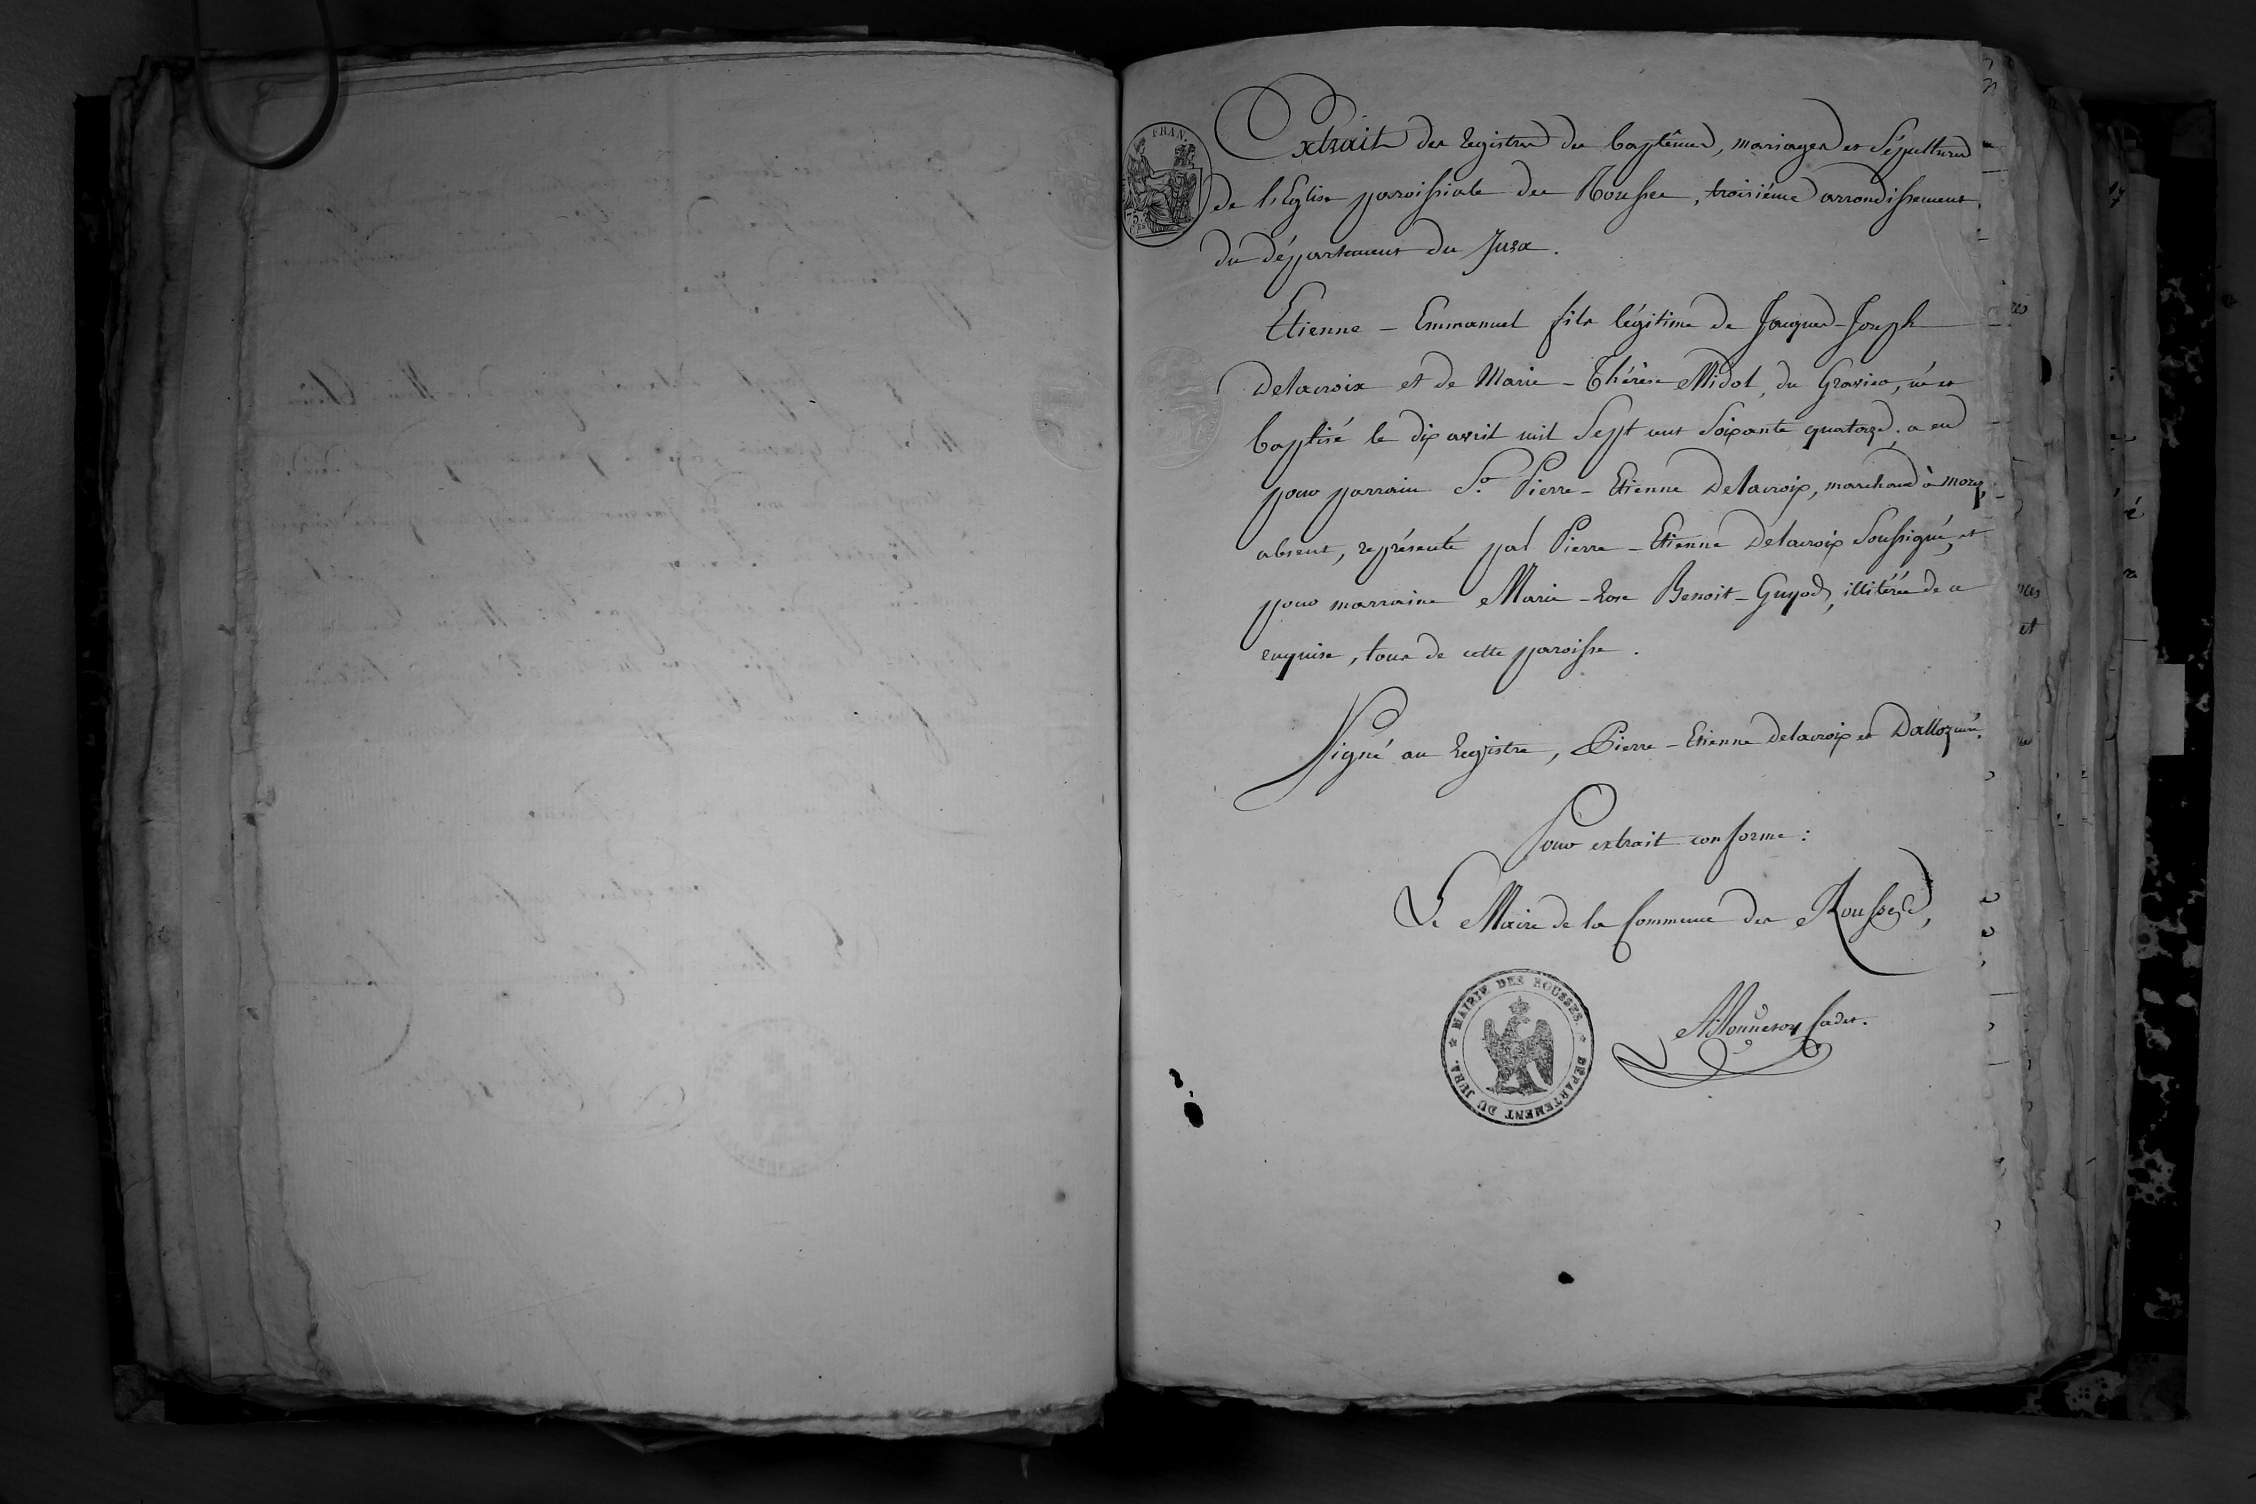 FRAN.
75
Extrait des registres des baptêmes, mariages et Sépultures
de l'Eglise paroissiale des Rousses, troisiéme arrondissement
du département du Jura.
Etienne - Emmanuel fils légitime de Jacques-Joseph
Delacroix et de Marie - Thérèse Midol, du Gravier, né et
baptisé le dix avril mil Sept cent Soixante quatorze, a eu
pour parrain S.r Pierre - Etienne Delacroix, marchand à morez,
absent, représenté par Pierre - Etienne Delacroix Soussigné, et
pour marraine Marie - Rose Benoit - Guyod, illitérée de ce
enquise, tous de cette paroisse.
Signé au Registre, Pierre - Etienne Delacroix et Dalloz curé.
Pour extrait conforme :
Le Maire de la Commune des Rousses,
MAIRIE DES ROUSSES. DÉPARTEMENT DU JURA.
Monneroy Cadet.